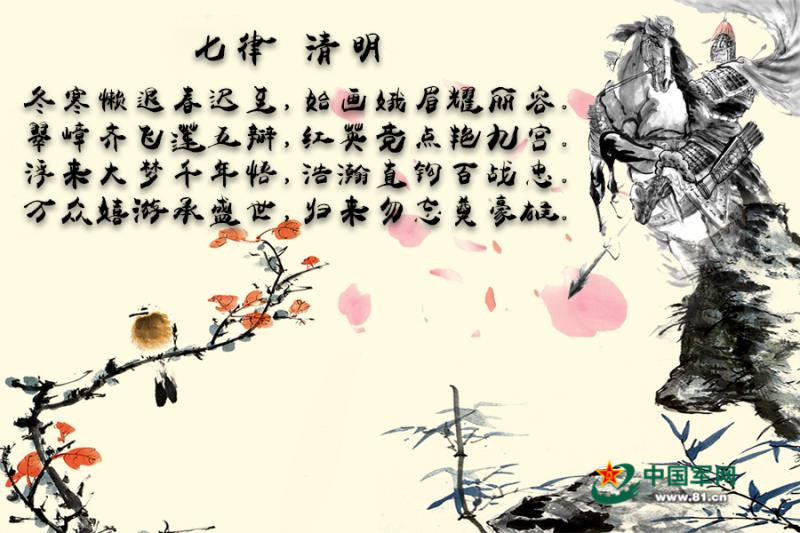 七律 清明
冬寒懒退春迟至,始画娥眉耀丽容。
翠嶂齐飞莲五瓣,红荧竞点艳九宫。
浮来大梦千年悟,浩瀚直钩百战忠。
万众嬉游承盛世,归来勿忘奠豪雄。
中国军网
www.81.cn